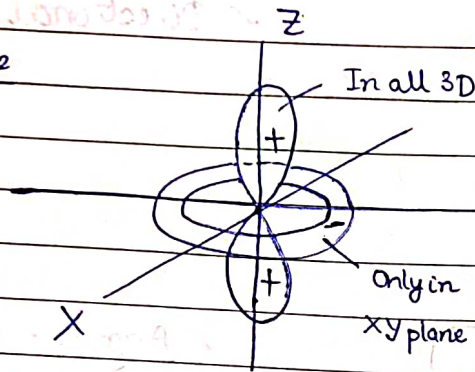 Z
2
In all 3D
+
-
+
Only in
X
XY plane